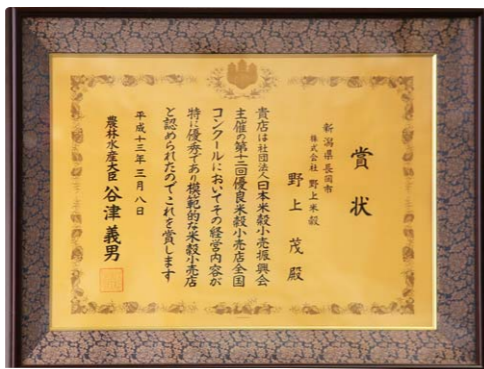 賞状
新潟県長岡市
株式会社 野上米穀
野上 茂 殿
貴店は社団法人日本米穀小売振興会
主催の第十二回優良米穀小売店全国
コンクールにおいてその経営内容が
特に優秀であり模範的な米穀小売店
と認められたのでこれを賞します
平成十三年三月八日
農林水産大臣 谷津義男